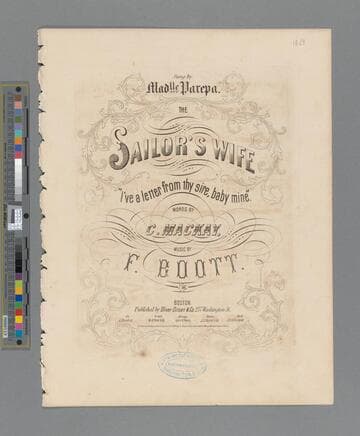 Sung by
Mad.lle Parepa.
THE
SAILOR'S WIFE
"I've a letter from thy sire, baby mine."
WORDS BY
C. MACKAY,
MUSIC BY
F. BOOTT.
BOSTON
Published by Oliver Ditson & Co. 277 Washington St.